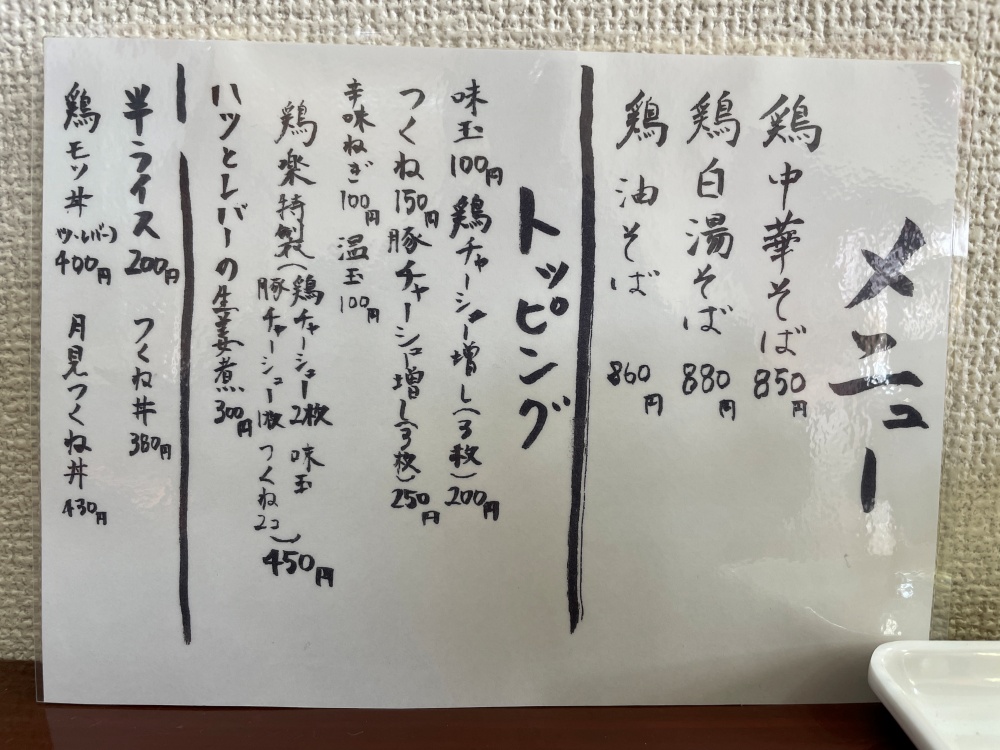 メニュー
鶏中華そば 850円
鶏白湯そば 880円
鶏油そば 860円
トッピング
味玉 100円 鶏チャーシュー増し(3枚) 200円
つくね 150円 豚チャーシュー増し(3枚) 250円
辛味ねぎ 100円 温玉 100円
鶏楽特製(鶏チャーシュー2枚 味玉
豚チャーシュー1枚 つくね2コ) 450円
ハツとレバーの生姜煮 300円
半ライス 200円 つくね丼 380円
鶏モツ丼 (ハツ・レバー) 400円 月見つくね丼 430円